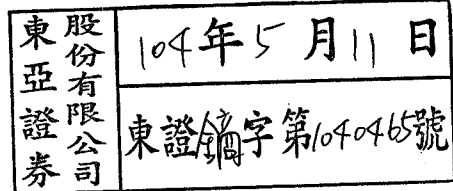 東亞證券
股份有限公司
104年5月11日
東證鏑字第1040465號